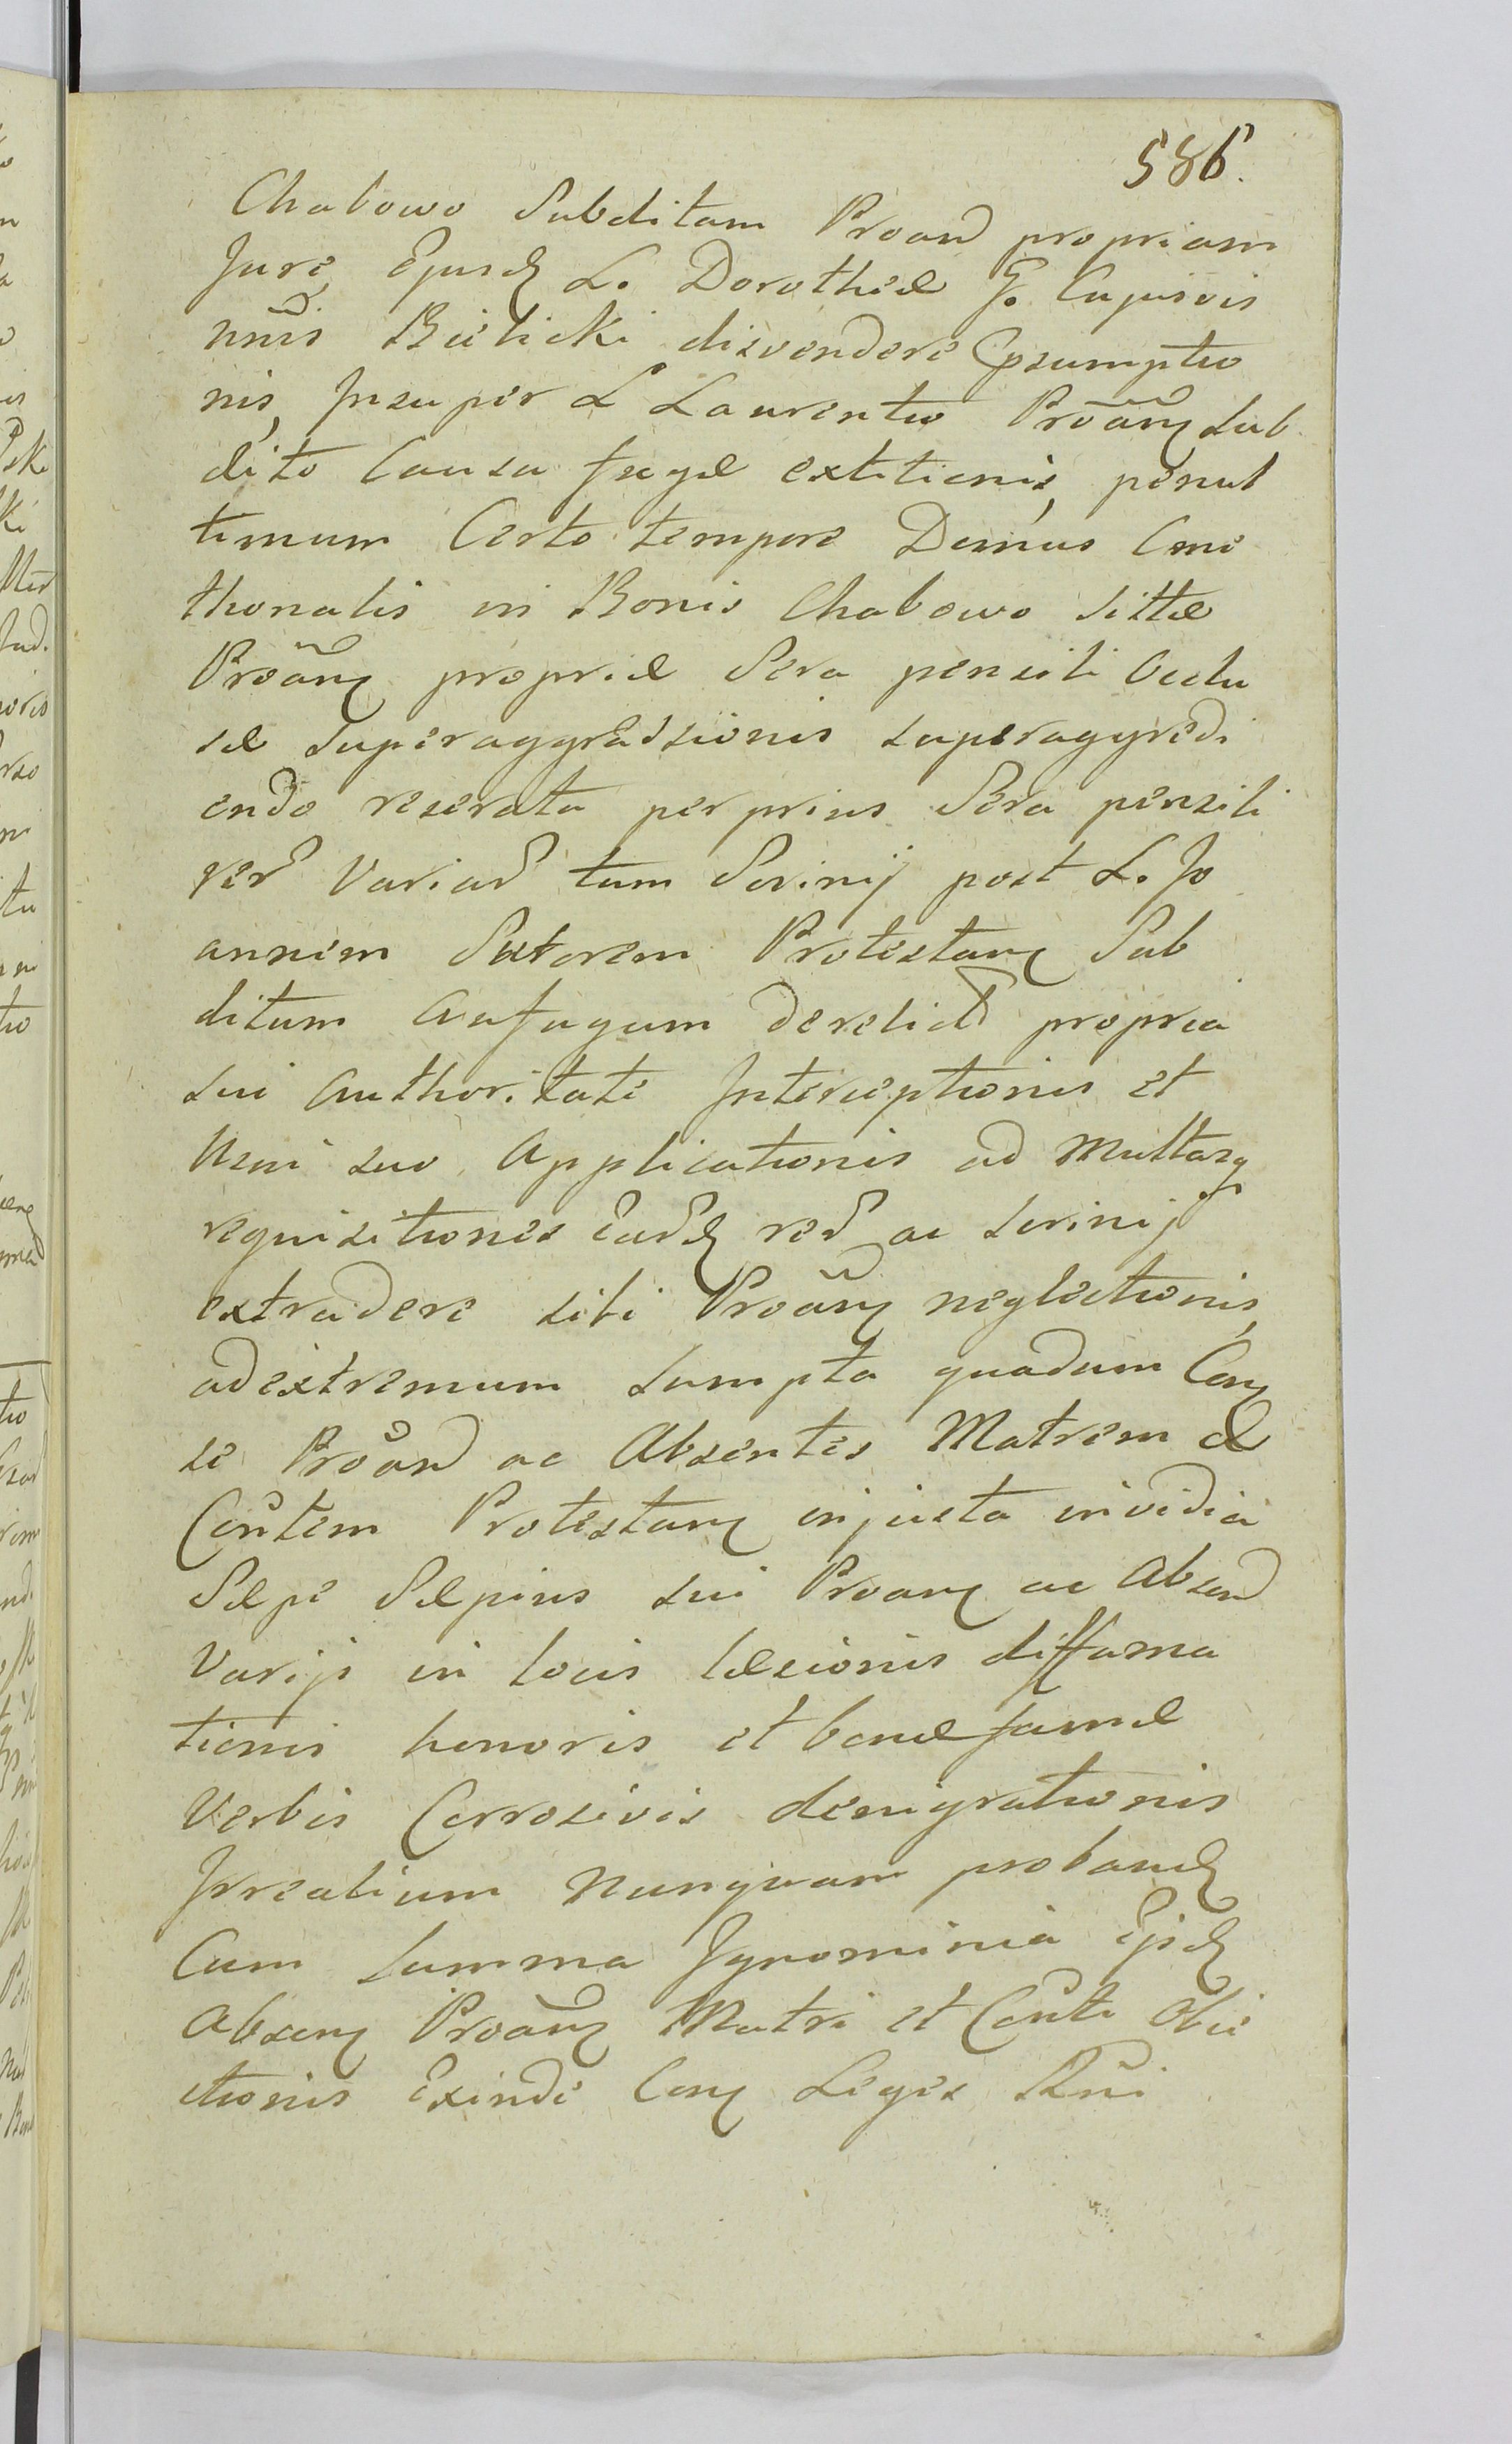 586.
Chabowo Subditam Proand propriam
Jure, Ejusd L. Dorotheæ G. Cujusvis
nnis Bielicki disvendere Psumptio
nis, Insuper L Laurentio Proanq Sub
dito Causa fugæ extitionis, penul
timum Certo tempore Domus Cme
thonalis in Bonis Chabowo Sittæ
Proanq propriæ Sera pensili Occlu
sæ Superaggressionis superaggredi
endo reserata per prius Sera pensili
rer Variar tum Scrinij post L. Jo
annem Sutorem Protestanq Sub
ditum Aufugum derelict propria
sui Authoritate Interceptionis et
Usui suo Applicationis ad Multasq
requisitiones Eard rer ac scrinij
extradere sibi Proanq neglectionis,
ad extremum sumpta quadam Con
se Proand ac Absentes Matrem &
Contem Protestanq injusta invidia
Sæpe Sæpius sui Proanq ac Absend
Varijs in locis læsionis diffama
tionis honoris et bonæ famæ
Verbis Corrosivis denigrationis
Irrealium Nunquam proband
Cum Summa Ignominia Ejsd
Absenq Proanq Matri et Conti Obie
ctionis Exinde Conq Leges Rni